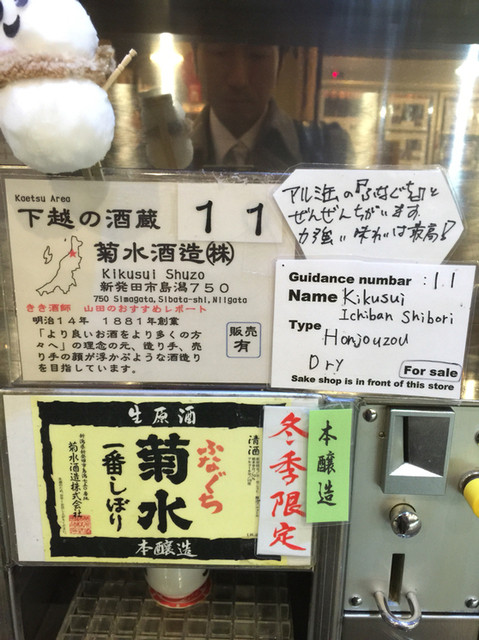 Kaetsu Area
下越の酒蔵
11
菊水酒造㈱
Kikusui Shuzo
新発田市島潟750
750 Simagata,Sibata-shi,Niigata
きき酒師 山田のおすすめレポート
明治14年 1881年創業
「より良いお酒をより多くの方
々へ」の理念の元、造り手、売
り手の顔が浮かぶような酒造り
を目指しています。
販売
有
アルミ缶の『ふなぐち』と
ぜんぜんちがいます。
力強い味わいは最高!
Guidance numbar :11
Name Kikusui
Ichiban Shibori
Type Honjouzou
Dry
For sale
Sake shop is in front of this store
生原酒
ふなぐち
菊水
一番しぼり
清酒
菊水酒造株式会社
本醸造
冬季限定
本醸造